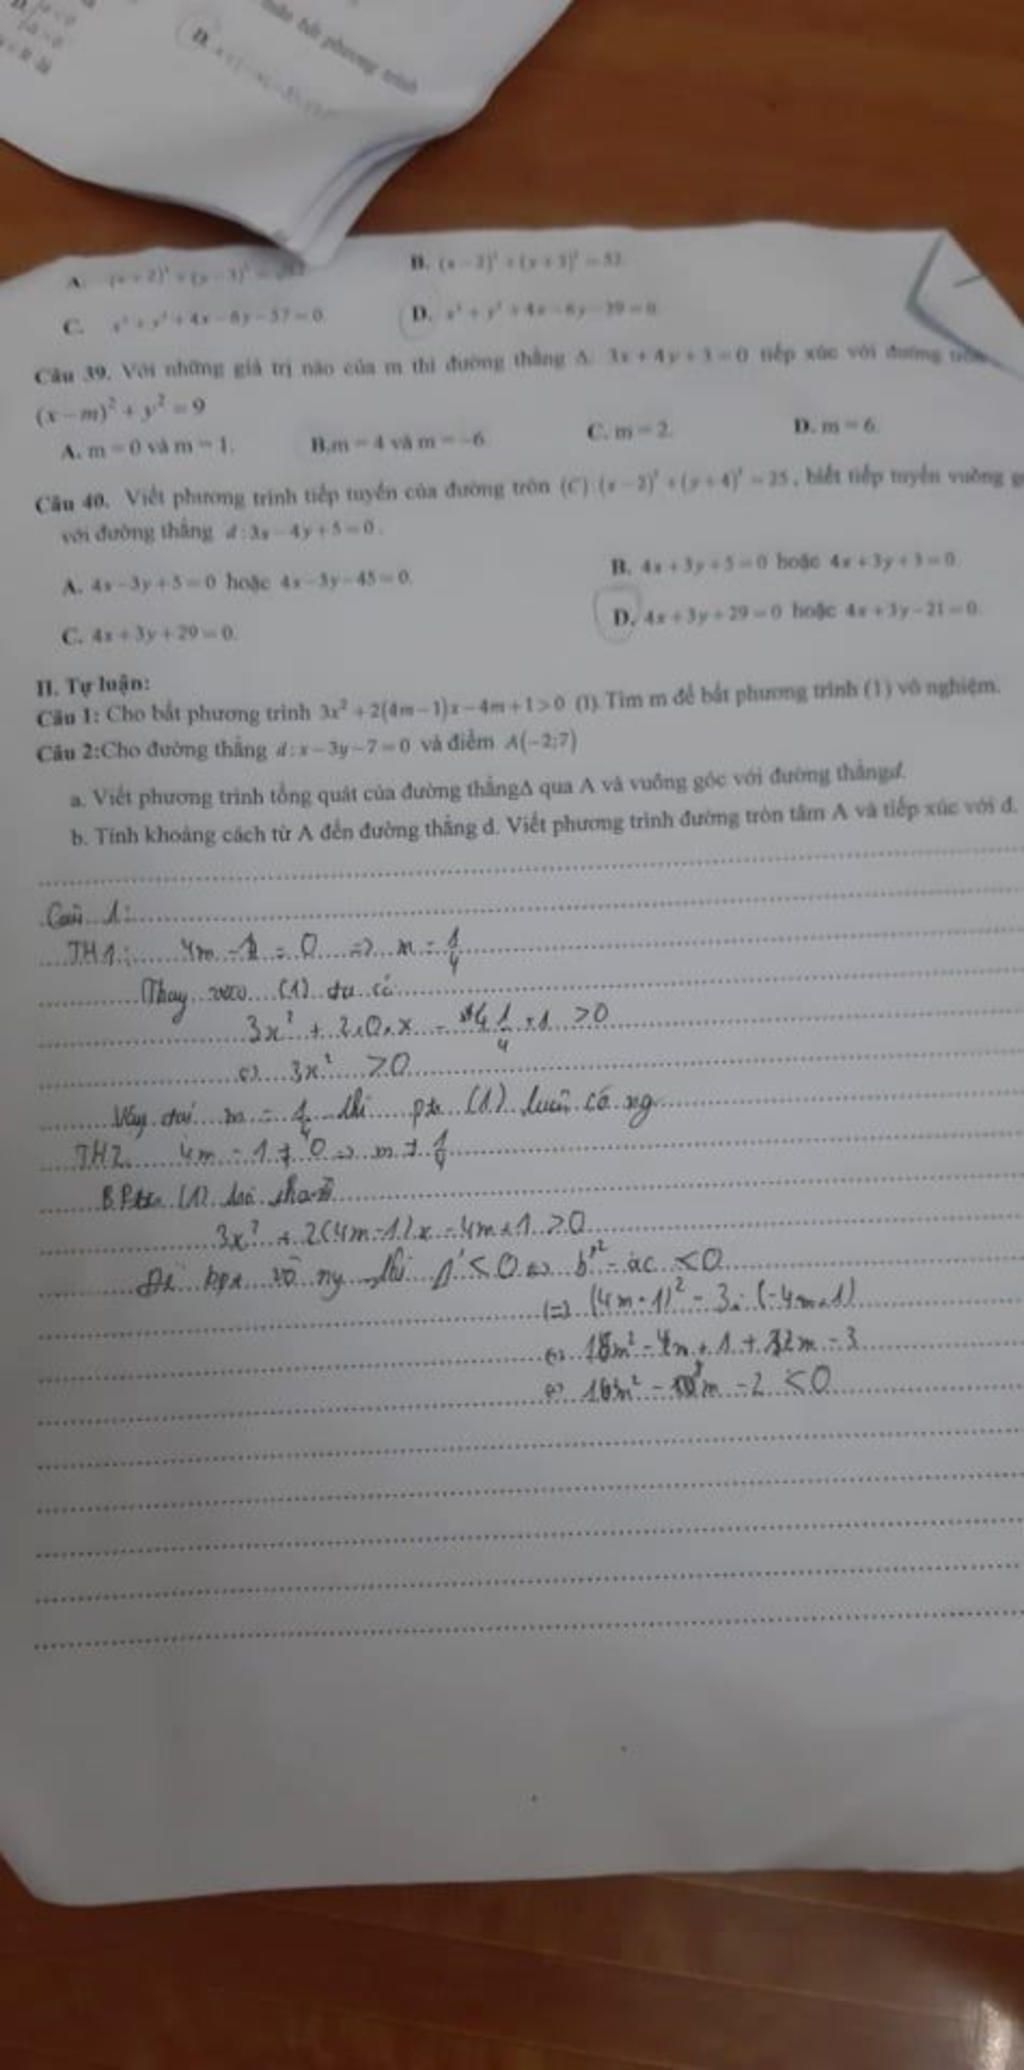 toàn bất phương trình
D.
A. (x+2)² + (y-3)² =
B. (x-2)² + (y+3)² = 52.
C. x² + y² + 4x - 6y - 57 = 0.
D. x² + y² + 4x - 6y - 39 = 0.
Câu 39. Với những giá trị nào của m thì đường thẳng Δ: 3x + 4y + 3 = 0 tiếp xúc với đường tròn
(x - m)² + y² = 9
A. m = 0 và m = 1.
B.m = 4 và m = -6.
C. m = 2.
D. m = 6.
Câu 40. Viết phương trình tiếp tuyến của đường tròn (C): (x-2)² + (y+4)² = 25, biết tiếp tuyến vuông
với đường thẳng d: 3x - 4y + 5 = 0.
A. 4x - 3y + 5 = 0 hoặc 4x - 3y - 45 = 0.
B. 4x + 3y + 5 = 0 hoặc 4x + 3y + 3 = 0.
C. 4x + 3y + 29 = 0.
D. 4x + 3y + 29 = 0 hoặc 4x + 3y - 21 = 0.
II. Tự luận:
Câu 1: Cho bất phương trình 3x² + 2(4m - 1)x - 4m + 1 > 0 (1). Tìm m để bất phương trình (1) vô nghiệm.
Câu 2:Cho đường thẳng d: x - 3y - 7 = 0 và điểm A(-2;7)
a. Viết phương trình tổng quát của đường thẳngΔ qua A và vuông góc với đường thẳngd.
b. Tính khoảng cách từ A đến đường thẳng d. Viết phương trình đường tròn tâm A và tiếp xúc với d.
Câu 1:
TH1: 4m - 1 = 0 => m = 1/4
Thay vào (1) ta có
3x² + 2.0.x - 4 1/4 + 1 > 0
<=> 3x² > 0
Vậy m = 1/4 thì pt (1) luôn có ng
TH2 4m - 1 ≠ 0 => m ≠ 1/4
(1)
3x² + 2(4m-1)x - 4m + 1 > 0
Để bpt vô ng thì Δ' < 0 <=> b'² - ac < 0
<=> (4m-1)² - 3.(-4m+1)
<=> 16m² - m + 1 + 12m - 3
<=> 16m² - m - 2 < 0